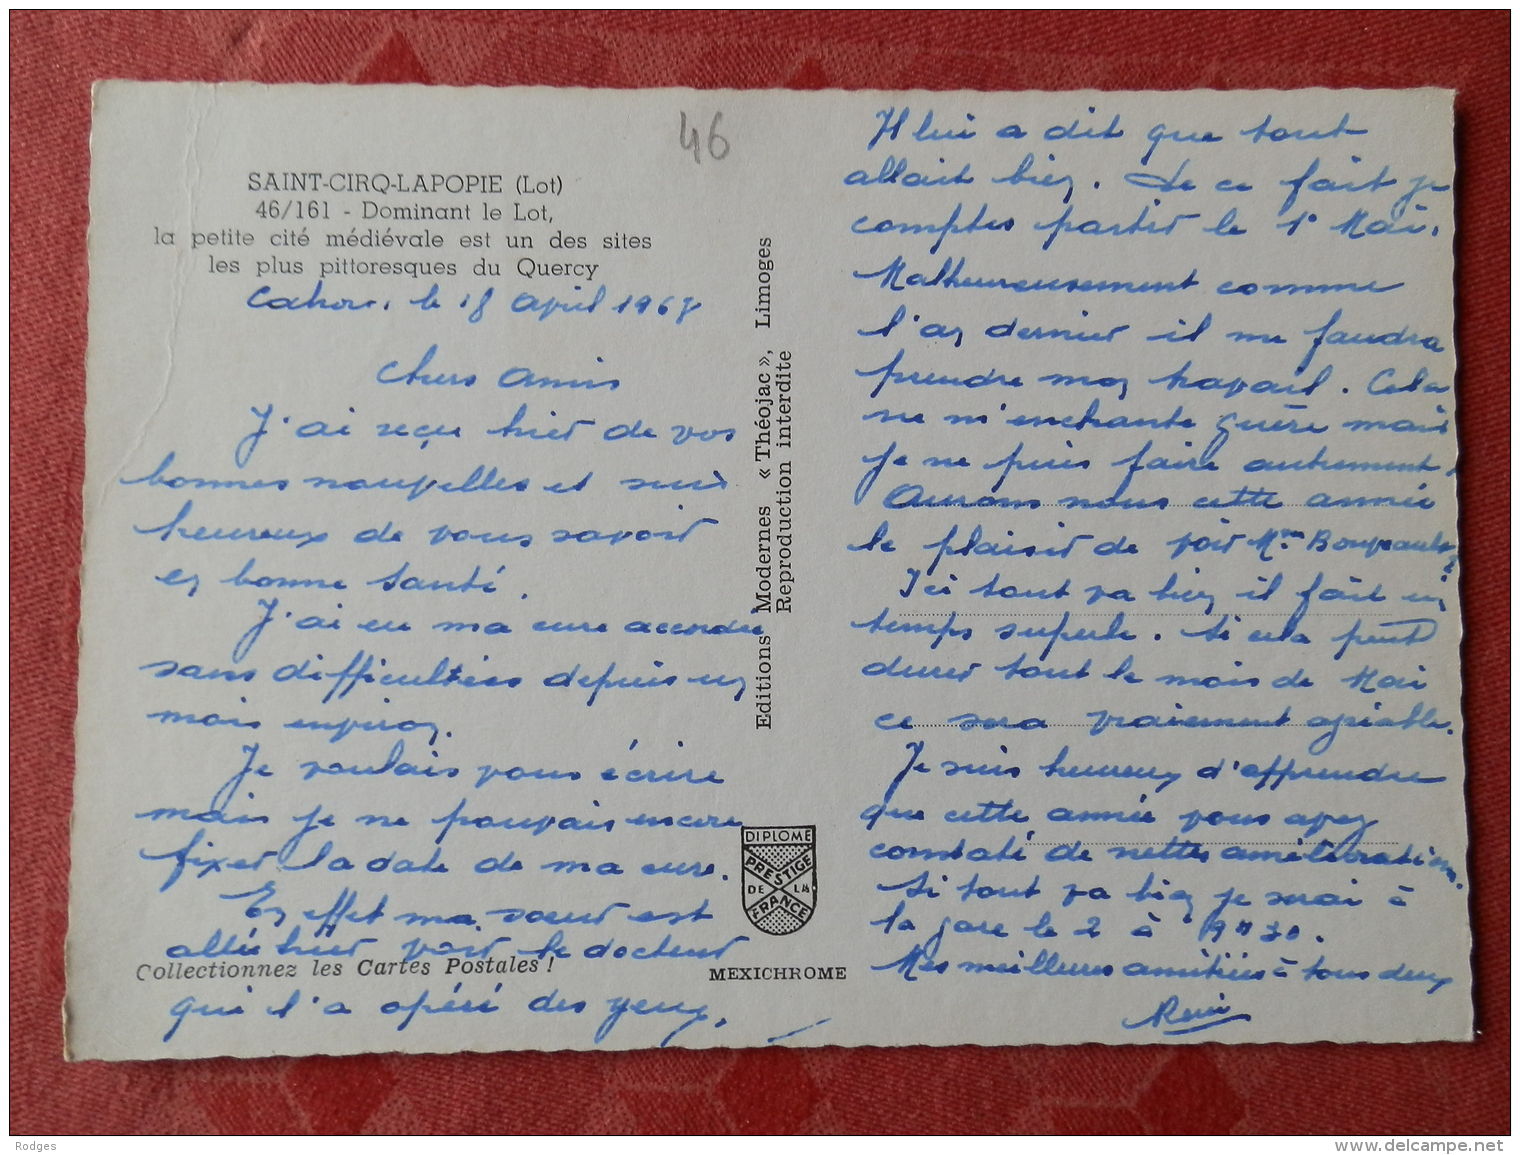 46
SAINT-CIRQ-LAPOPIE (Lot)
46/161 - Dominant le Lot,
la petite cité médiévale est un des sites
les plus pittoresques du Quercy
Cahors, le 18 april 1967
Chers Amis
J'ai reçu hier de vos
bonnes nouvelles et suis
heureux de vous savoir
en bonne santé.
J'ai eu ma cure accordée
sans difficultées depuis un
mois environ.
Je voulais vous écrire
mais je ne pouvais encore
fixer la date de ma cure.
En effet ma soeur est
allée hier voir le docteur
Collectionnez les Cartes Postales !
qui l'a opéré des yeux.
Editions Modernes « Théojac », Limoges
Reproduction interdite
DIPLOME
PRESTIGE
DE LA
FRANCE
MEXICHROME
Il lui a dit que tout
allait bien. De ce fait je
comptes partir le 1° Mai.
Malheureusement comme
l'an dernier il me faudra
prendre mon travail. Cela
ne m'enchante guère mais
je ne puis faire autrement.
Aurons nous cette année
le plaisir de voir Mme
Ici tout va bien il fait un
temps superbe. Si cela peut
durer tout le mois de Mai
ce sera vraiement agréable.
Je suis heureux d'apprendre
que cette année vous avez
constaté de nettes améliorations.
Si tout va bien je serai à
la gare le 2 à 19H30.
Mes meilleures amitiées à tous deux
Rémi
Rodges
www.delcampe.net